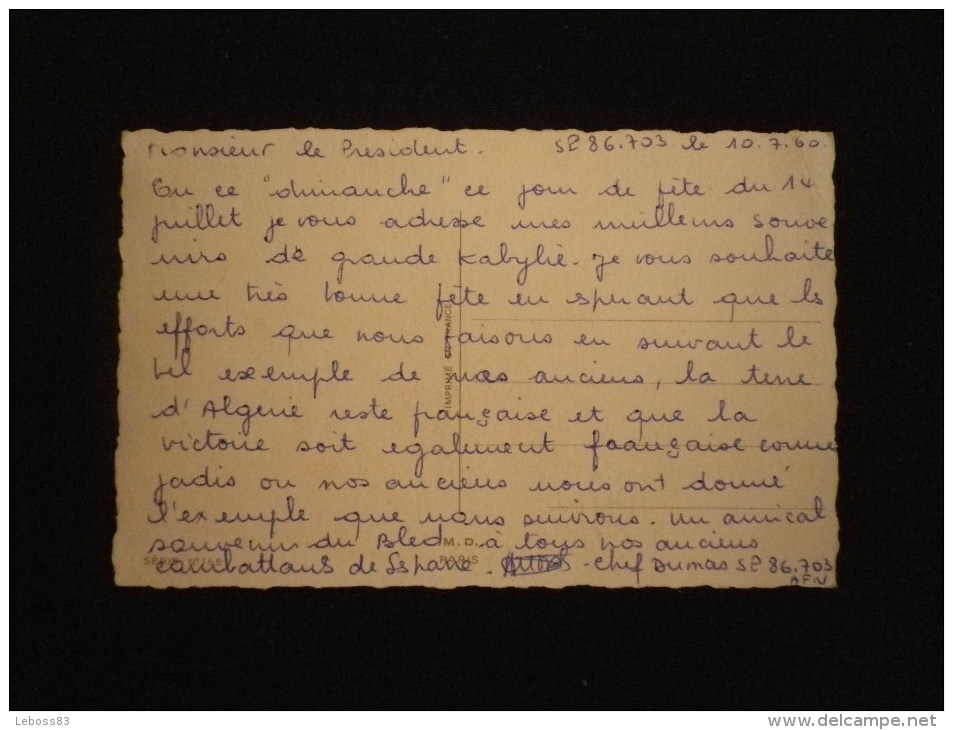 Monsieur le President. SP 86.703 le 10.7.60.
En ce "dimanche" ce jour de fête du 14
juillet je vous adresse mes meilleurs souve
nirs de grande Kabylie. Je vous souhaite
une très bonne fête en sperant que ls
efforts que nous faisons en suivant le
bel exemple de nos anciens, la terre
d'Algerie reste française et que la
victoire soit egalement française comme
jadis ou nos anciens nous ont donné
l'exemple que nous suivrons. un amical
souvenir du Bled à tous nos anciens
combattans de Lspare. - chef Dumas SP 86.703
AFN
IMPRIMÉ EN FRANCE
M.D.
PARIS
Leboss83
www.delcampe.net